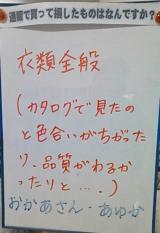 通販で買って損したものはなんですか?
衣類全般
(カタログで見たの
と色合いがちがかった
り、品質がわるか
ったりと…。)
おかあさん・あゆか